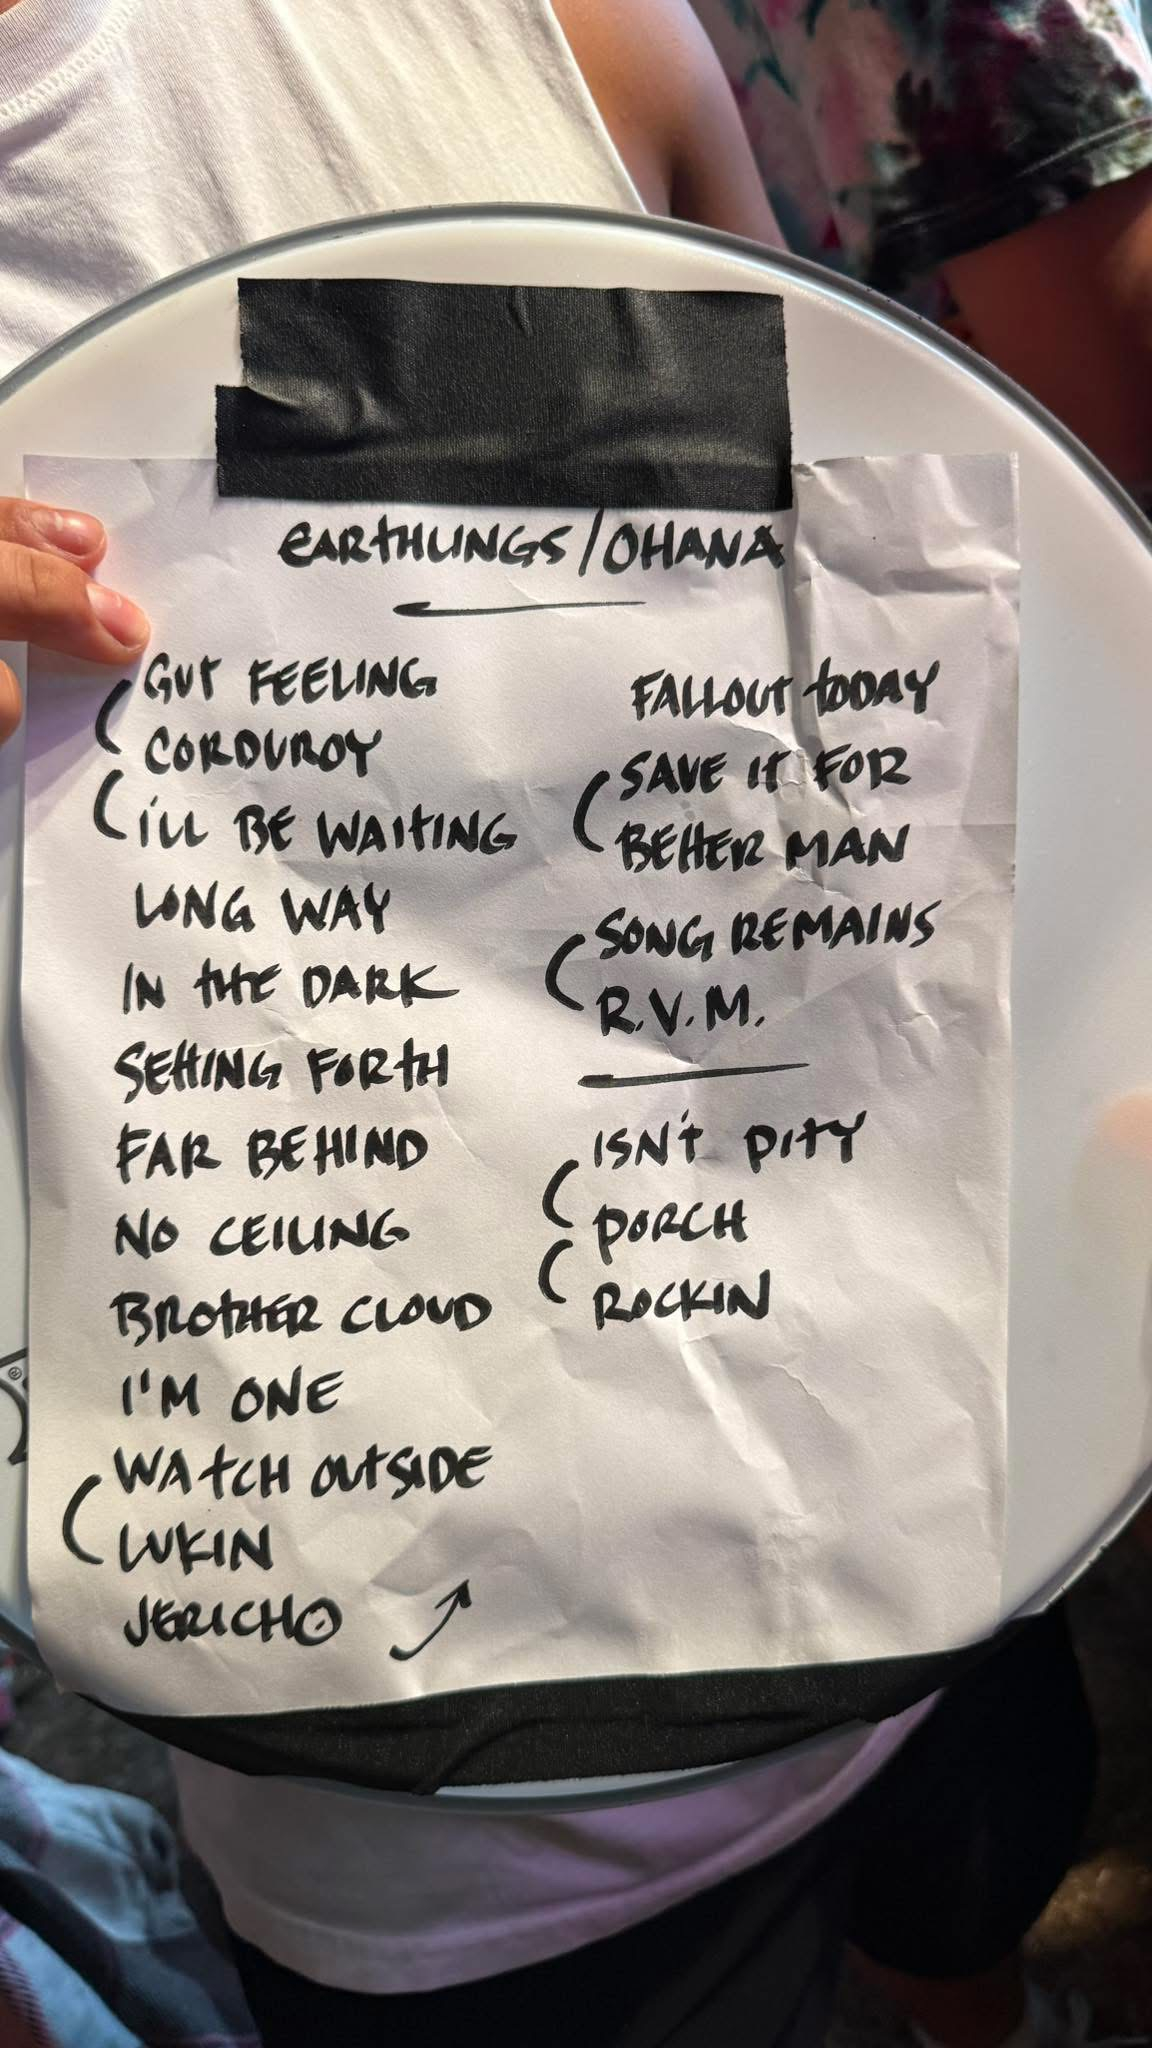 EARTHLINGS/OHANA
GUT FEELING
CORDUROY
I'LL BE WAITING
LONG WAY
IN THE DARK
SETTING FORTH
FAR BEHIND
NO CEILING
BROTHER CLOUD
I'M ONE
WATCH OUTSIDE
LUKIN
JERICHO
FALLOUT TODAY
SAVE IT FOR
BETTER MAN
SONG REMAINS
R.V.M.
ISN'T PITY
PORCH
ROCKIN